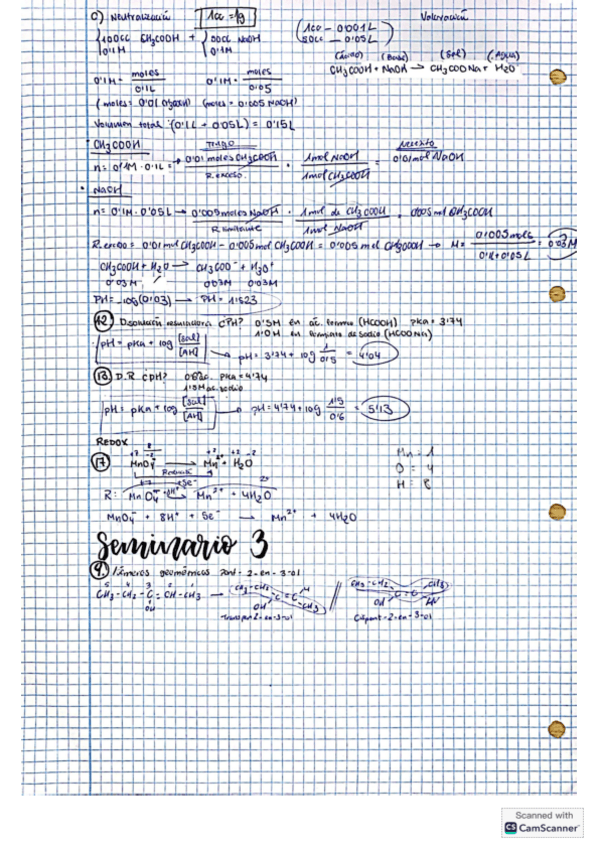 c) Neutralización 1cc = 1g (1cc - 0'001L Valoración
{100cc CH3COOH + {00cc NaOH 50cc - 0'05L)
0'1M 0'1M
(Ácido) (Base) (Sal) (Agua)
CH3COOH + NaOH → CH3COONa + H2O
0'1M = moles / 0'1L 0'1M = moles / 0'05
(moles = 0'01 CH3COOH) (moles = 0'005 NaOH)
Volumen total (0'1L + 0'05L) = 0'15L
CH3COOH TENGO necesito
n = 0'1M · 0'1L = 0'01 moles CH3COOH · 1mol NaOH / 1mol CH3COOH = 0'01 mol NaOH
R. exceso.
· NaOH
n = 0'1M · 0'05L → 0'005 moles NaOH · 1mol de CH3COOH / 1mol NaOH = 0'005 mol CH3COOH
R. limitante
R. exceso = 0'01 mol CH3COOH - 0'005 mol CH3COOH = 0'005 mol CH3COOH → M = 0'005 moles / 0'1L+0'05L = 0'03M
CH3COOH + H2O → CH3COO⁻ + H3O⁺
0'03M 0'03M 0'03M
PH = -log(0'03) → PH = 1'523
12. Disolución reguladora ¿PH? 0'5M en ác. fórmico (HCOOH) pKa = 3'74
1'0M en formiato de sodio (HCOONa)
pH = pKa + log [sal]/[AH] → pH = 3'74 + log 1/0'5 = 4'04
13. D.R. ¿pH? pKa = 4'74
1'5M ac. sodio
pH = pKa + log [sal]/[AH] → pH = 4'74 + log 1'5/0'6 = 5'13
REDOX
17. MnO4⁻ → Mn²⁺ + H2O
Mn = 1
O = 4
H = 8
R: MnO4⁻ + 8H⁺ → Mn²⁺ + 4H2O
MnO4⁻ + 8H⁺ + 5e⁻ → Mn²⁺ + 4H2O
Seminario 3
9. Isómeros geométricos pent-2-en-3-ol
5 4 3 2 1
CH3-CH2-C=CH-CH3 → CH3-CH2 C=C H // CH3-CH2 C=C CH3
OH OH CH3 OH
Trans pent-2-en-3-ol Cis pent-2-en-3-ol
Scanned with
CS CamScanner